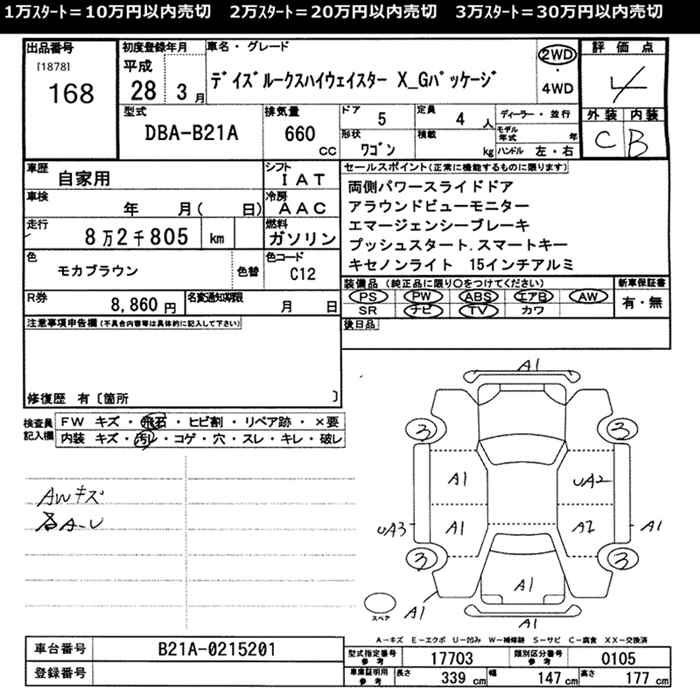 1万ｽﾀｰﾄ＝10万円以内売切　2万ｽﾀｰﾄ＝20万円以内売切　3万ｽﾀｰﾄ＝30万円以内売切
出品番号
[1878]
168
初度登録年月
平成
28 3月
車名・グレード
ﾃﾞｲｽﾞﾙｰｸｽﾊｲｳｪｲｽﾀｰ X_Gﾊﾟｯｹｰｼﾞ
2WD
・
4WD
評価点
4
外装 内装
C B
型式
DBA-B21A
排気量
660
CC
ドア
5
定員
4 人
ディーラー・並行
形状
ﾜｺﾞﾝ
積載
kg
モデル年式 年
ハンドル 左・右
車歴
自家用
シフト
IAT
車検
年 月( 日)
冷房
AAC
走行
8万2千805 km
燃料
ガソリン
色
モカブラウン
色替
色コード
C12
R券
8,860 円
名変通知期限
月 日
セールスポイント(正常に機能するものに限ります)
両側パワースライドドア
アラウンドビューモニター
エマージェンシーブレーキ
プッシュスタート.スマートキー
キセノンライト 15インチアルミ
装備品 (純正品に限り○をつけてください)
PS PW ABS エアB AW
SR ナビ TV カワ
新車保証書
有・無
後日品
注意事項申告欄(不具合内容等は具体的に記入して下さい)
修復歴 有〔箇所 〕
検査員記入欄
FW キズ・飛石・ヒビ割・リペア跡・×要
内装 キズ・汚レ・コゲ・穴・スレ・キレ・破レ
AWキズ
A-U
A1
3 3
A1 UA2
UA3 A1 A2 A1
3 3
A1
A1 A1
スペア
A－キズ E－エクボ U－凹み W－補修跡 S－サビ C－腐食 XX－交換済
車台番号
B21A-0215201
登録番号
型式指定番号
参考
17703
類別区分番号
参考
0105
車庫証明用
参考
長さ
339 cm
幅
147 cm
高さ
177 cm